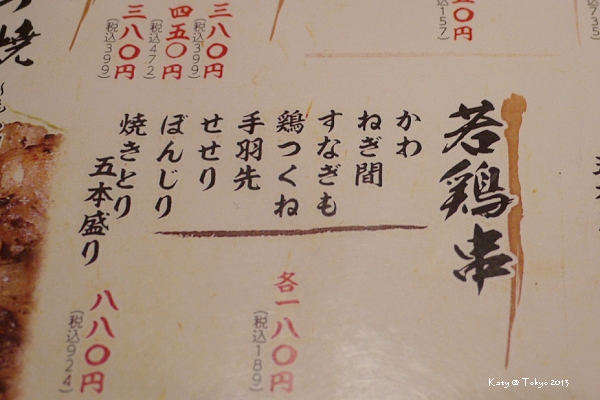 若鶏串
かわ
ねぎ間
すなぎも
鶏つくね
手羽先
せせり
ぼんじり
各一八〇円
(税込189)
焼きとり
五本盛り
八八〇円
(税込924)
三八〇円
(税込399)
四五〇円
(税込472)
三八〇円
(税込399)
五〇円
込157)
Katy @ Tokyo 2013